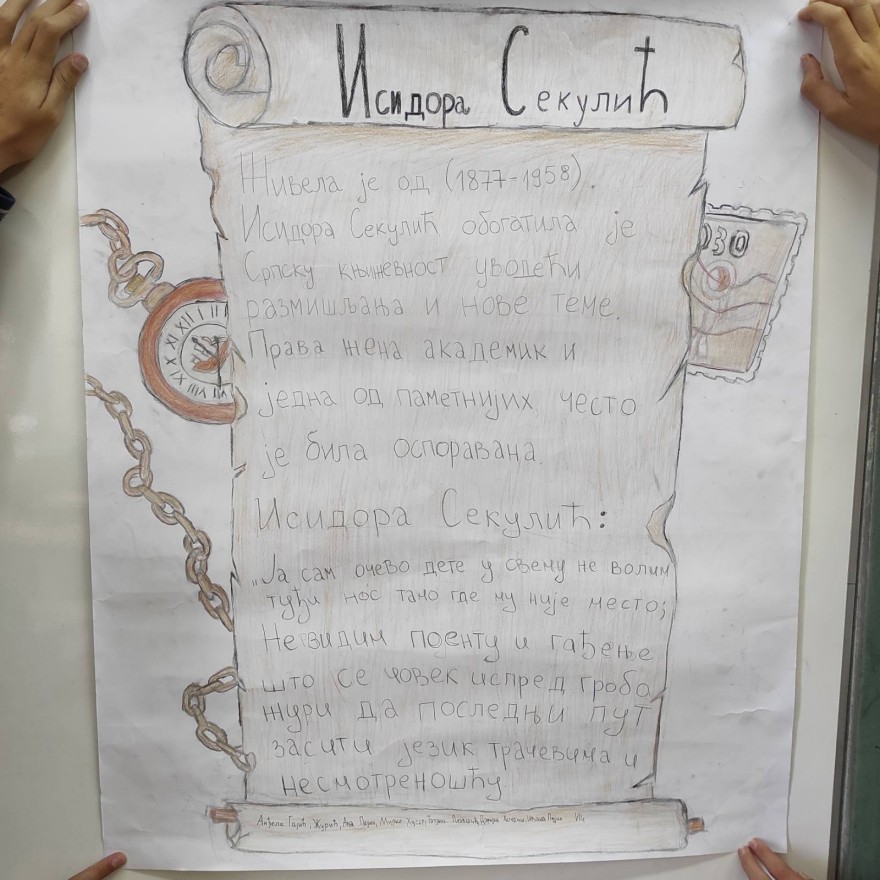 Исидора Секулић
Живела је од (1877-1958).
Исидора Секулић обогатила је
Српску књижевност уводећи
размишљања и нове теме.
Права жена академик и
једна од паметнијих често
је била оспоравана.
Исидора Секулић:
„Ја сам очево дете у свему не волим
туђи нос тамо где му није место;
Не видим поенту и гађење
што се човек испред гроба
жури да последњи пут
засити језик трачевима и
несмотреношћу
030
XII I II
XI
X
IX
VIII
VII
Анђела Гајић, Ђурић, Ана